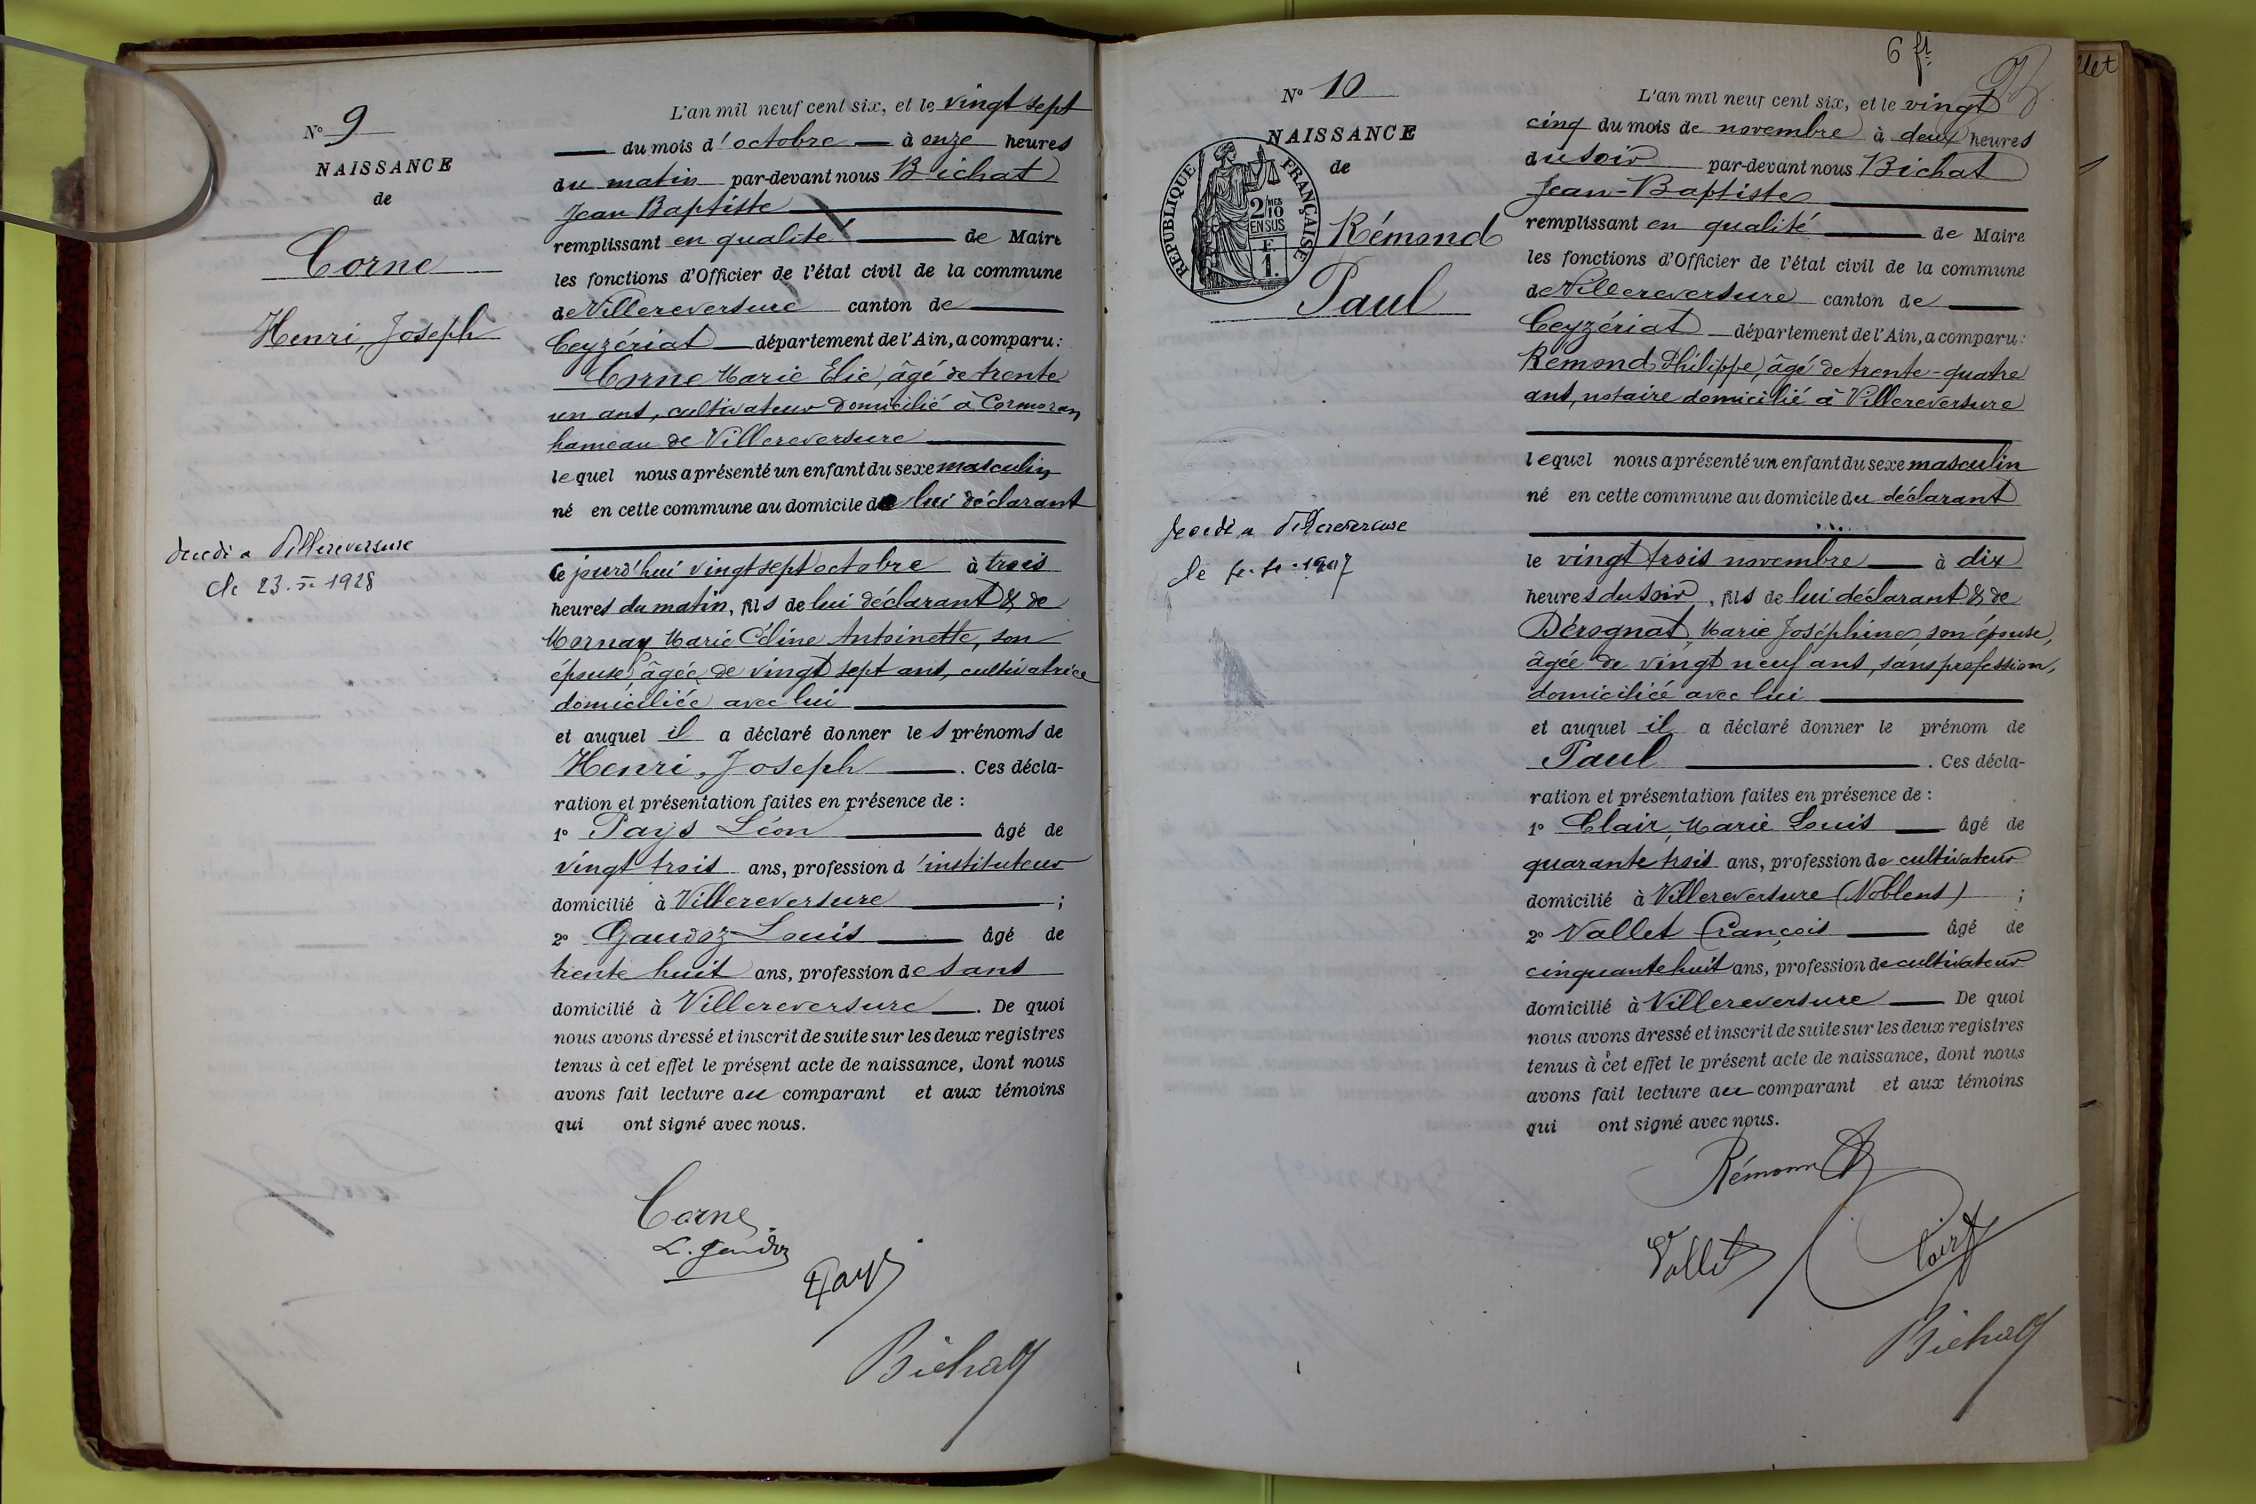 N° 9
NAISSANCE
de
Corne
Henri, Joseph
décédé à Villereversure
le 23.XI 1928
L'an mil neuf cent six, et le vingt sept
du mois d'octobre à onze heures
du matin par-devant nous Bichat
Jean Baptiste
remplissant en qualité de Maire
les fonctions d'Officier de l'état civil de la commune
de Villereversure canton de
Ceyzériat département de l'Ain, a comparu:
Corne Marie Elie, âgé de trente
un ans, cultivateur domicilié à Cormoran
hameau de Villereversure
lequel nous a présenté un enfant du sexe masculin
né en cette commune au domicile de lui déclarant
Ce jourd'hui vingt sept octobre à trois
heures du matin, fils de lui déclarant & de
Mornay Marie Céline Antoinette, son
épouse, âgée de vingt sept ans, cultivatrice
domiciliée avec lui
et auquel il a déclaré donner les prénoms de
Henri, Joseph. Ces décla-
ration et présentation faites en présence de :
1° Pays Léon âgé de
vingt trois ans, profession d'instituteur
domicilié à Villereversure ;
2° Gaudoz Louis âgé de
trente huit ans, profession de sans
domicilié à Villereversure. De quoi
nous avons dressé et inscrit de suite sur les deux registres
tenus à cet effet le présent acte de naissance, dont nous
avons fait lecture au comparant et aux témoins
qui ont signé avec nous.
Corne
L. Gaudoz
Pays
Bichat
6 ft
llet
N° 10
NAISSANCE
de
RÉPUBLIQUE FRANÇAISE
2/10 MES
EN SUS
F
1.
Rémond
Paul
décédé à Villereversure
L'an mil neuf cent six, et le vingt
cinq du mois de novembre à deux heures
du soir par-devant nous Bichat
Jean-Baptiste
remplissant en qualité de Maire
les fonctions d'Officier de l'état civil de la commune
de Villereversure canton de
Ceyzériat département de l'Ain, a comparu:
Rémond Philippe, âgé de trente-quatre
ans, notaire domicilié à Villereversure
lequel nous a présenté un enfant du sexe masculin
né en cette commune au domicile du déclarant
le vingt trois novembre à dix
heures du soir, fils de lui déclarant & de
Dérognat, Marie Joséphine, son épouse,
âgée de vingt neuf ans, sans profession,
domiciliée avec lui
et auquel il a déclaré donner le prénom de
Paul. Ces décla-
ration et présentation faites en présence de :
1° Clair, Marie Louis âgé de
quarante trois ans, profession de cultivateur
domicilié à Villereversure (Noblens) ;
2° Vallet François âgé de
cinquante huit ans, profession de cultivateur
domicilié à Villereversure De quoi
nous avons dressé et inscrit de suite sur les deux registres
tenus à cet effet le présent acte de naissance, dont nous
avons fait lecture au comparant et aux témoins
qui ont signé avec nous.
Rémond
Vallet
Clair
Bichat